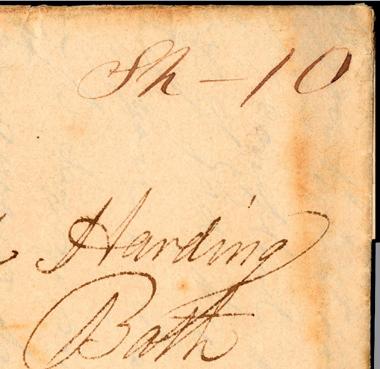 Sh - 10
Harding
Bath